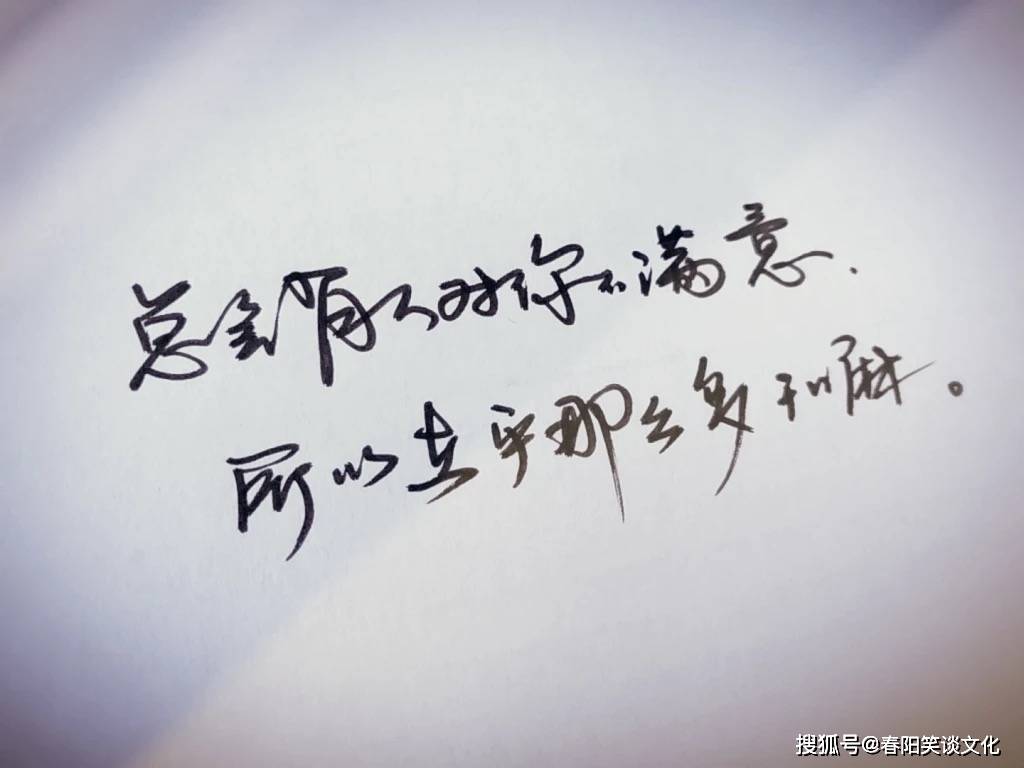 总会有人对你不满意、
所以在乎那么多干嘛。
搜狐号@春阳笑谈文化